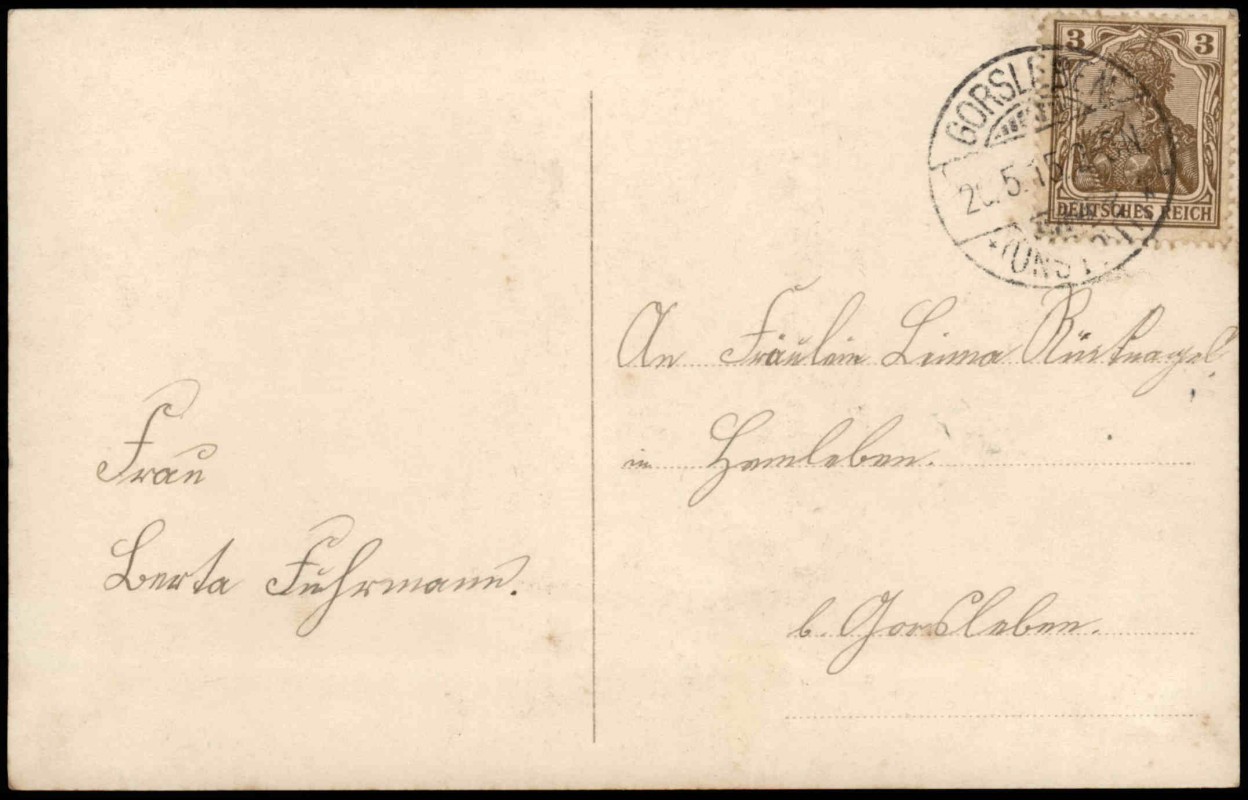 3 3
DEUTSCHES REICH
GORSLEBEN
5.15
(UNSTRUT)
An Fräulein Linna
in Hemleben.
b. Gorsleben.
Frau
Berta Fuhrmann.